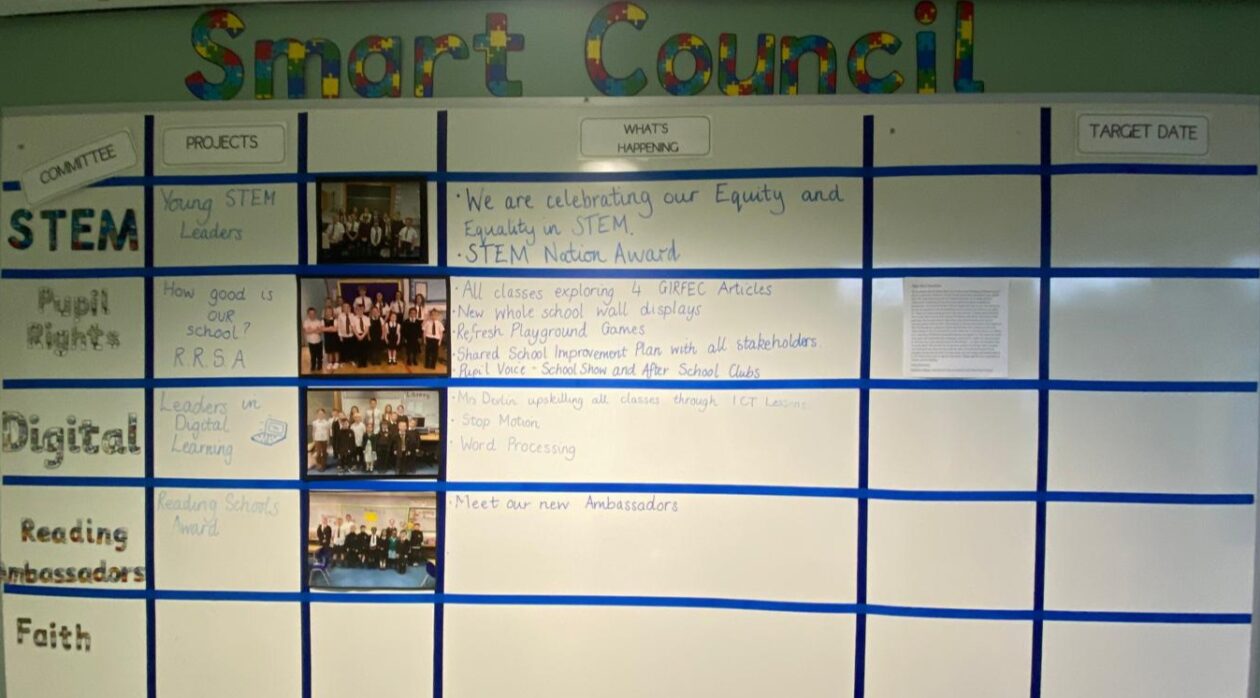 Smart Council
COMMITTEE
PROJECTS
WHAT'S
HAPPENING
TARGET DATE
STEM
Young STEM
Leaders
· We are celebrating our Equity and
Equality in STEM.
· STEM Nation Award
Pupil
Rights
How good is
OUR
school?
R.R.S.A
· All classes exploring 4 GIRFEC Articles
· New whole school wall displays
· Refresh Playground Games
· Shared School Improvement Plan with all stakeholders.
· Pupil Voice - School Show and After School Clubs
Digital
Leaders in
Digital
Learning
· Mrs Devlin upskilling all classes through ICT Lessons
· Stop Motion
· Word Processing
Reading
Ambassadors
Reading Schools
Award
· Meet our new Ambassadors
Faith